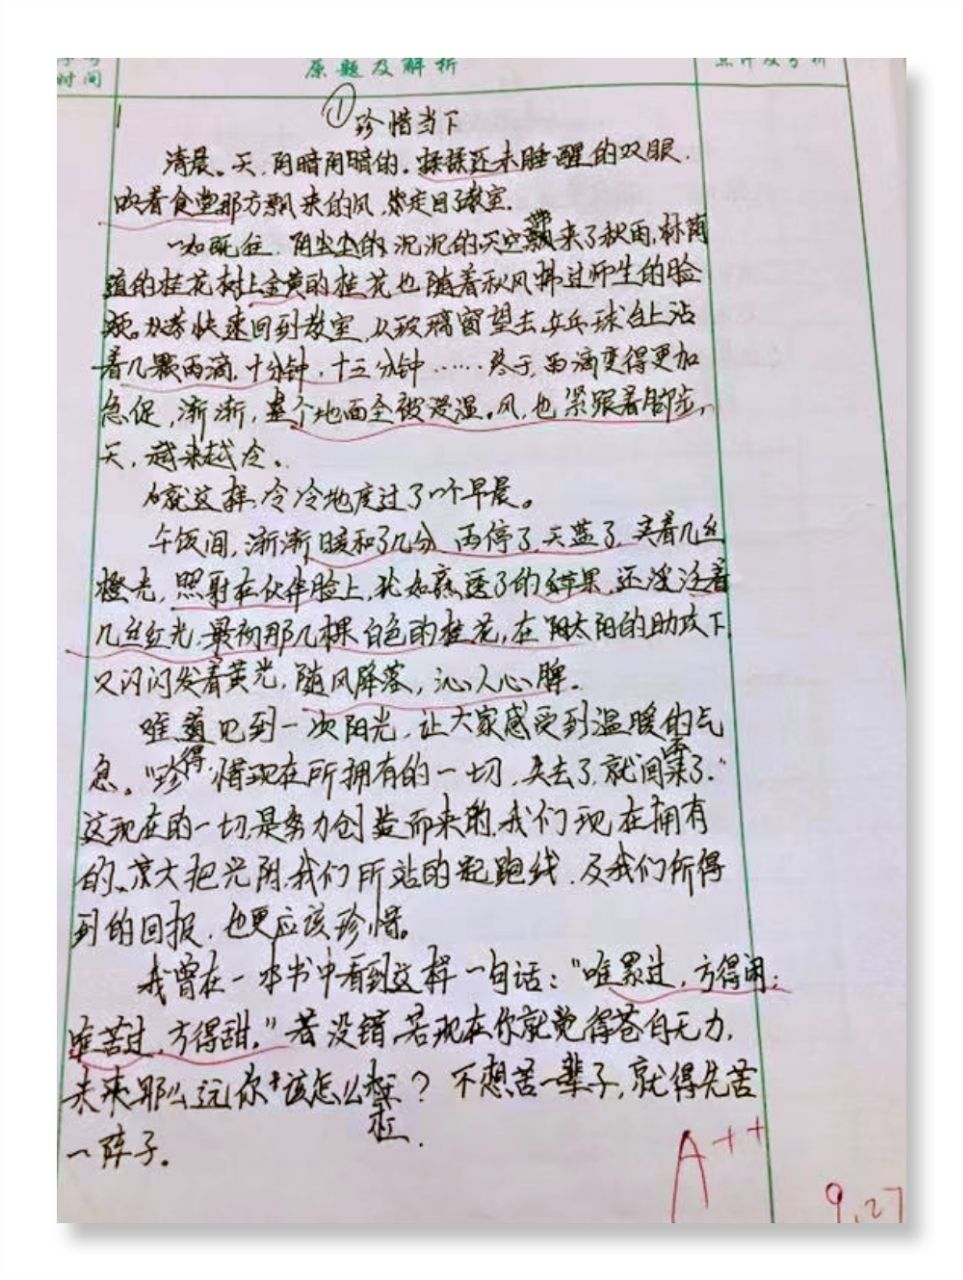 时间
原题及解析
点评及分析
1
① 珍惜当下
清晨。天，阴暗阴暗的。揉揉还未睡醒的双眼，
吹着食堂那方飘来的风，走回了教室。
一如既往，阴尘尘的沉沉的天空飘来了秋雨，林荫
道的桂花树上金黄的桂花也随着秋风拂过师生的脸
颊。快速回到教室，从玻璃窗望去，乒乓球台上沾
着几颗雨滴，十分钟，十三分钟……终于，雨滴变得更加
急促，渐渐，整个地面全被浸湿。风，也紧跟着脚步，
天，越来越冷。
就这样，冷冷地度过了一个早晨。
午饭间，渐渐暖和了几分，雨停了，天蓝了，夹着几丝
橙光，照射在伙伴脸上，犹如熟透了的苹果，还泛着
几丝红光，最初那几棵白色的桂花，在太阳的助攻下，
又闪闪发着黄光，随风降落，沁人心脾。
难道见到一次阳光，让大家感受到温暖的气
息。“珍惜现在所拥有的一切，失去了，就回不来了。”
这现在的一切，是努力创造而来的，我们现在拥有
的、大把光阴，我们所站的起跑线，及我们所得
到的回报，也更应该珍惜。
我曾在一本书中看到这样一句话：“唯累过，方得闲；
唯苦过，方得甜。”若没错，若现在你就觉得苍白无力，
未来那么远你该怎么扛？不想苦一辈子，就得先苦
一阵子。
A++
9.27